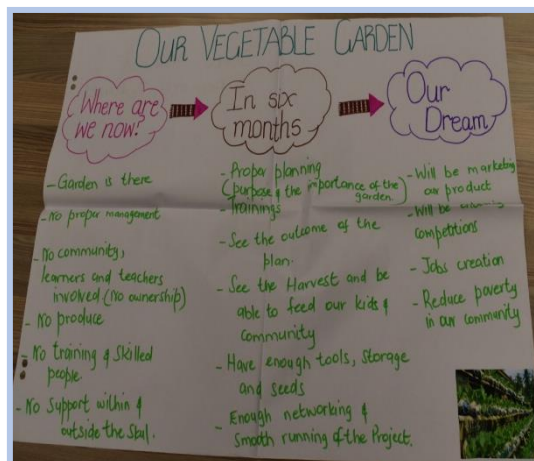 OUR VEGETABLE GARDEN
Where are
we now!
- Garden is there
- No proper management
- No community,
learners and teachers
involved (No ownership)
- No produce
- No training & Skilled
people.
- No Support within &
outside the
In six
months
- Proper planning
(purpose & the importance of the
garden)
- Trainings
- See the outcome of the
plan.
- See the Harvest and be
able to feed our kids &
community
- Have enough tools, Storage
and seeds
- Enough networking &
Smooth running of the Project.
Our
Dream
- Will be marketing
our product
- Will be
competitions
- Jobs creation
- Reduce poverty
in our community